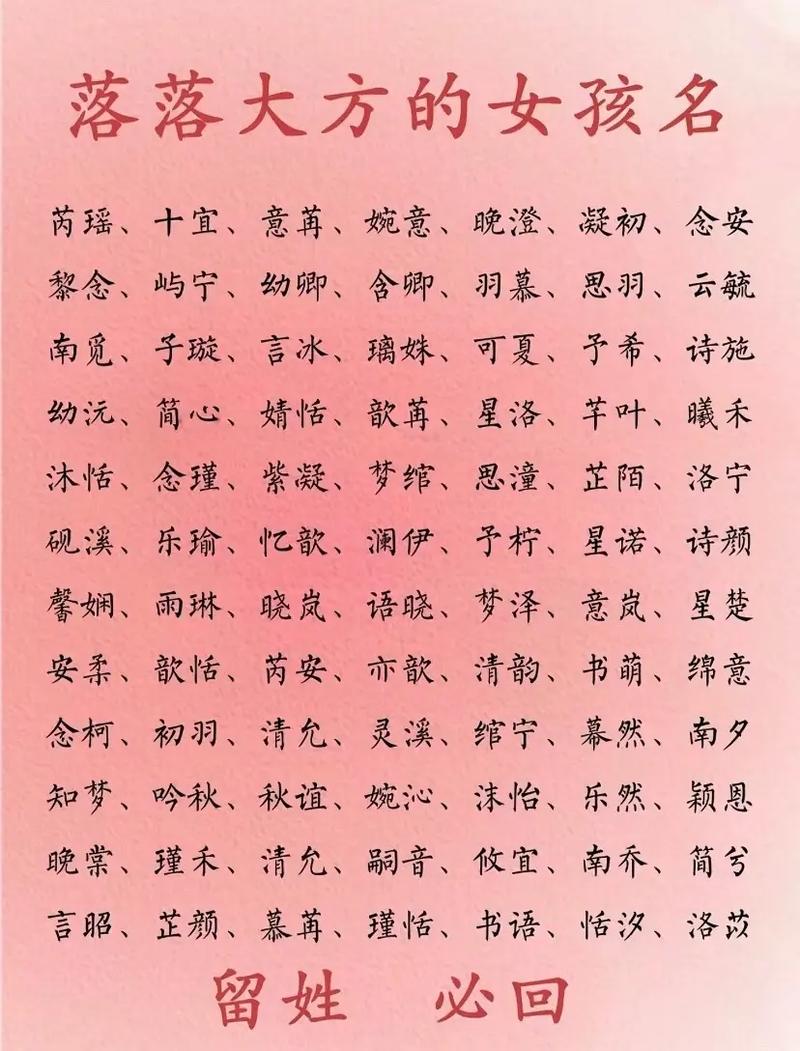 落落大方的女孩名
芮瑶、十宜、意苒、婉意、晚澄、凝初、念安
黎念、屿宁、幼卿、含卿、羽慕、思羽、云毓
南觅、子璇、言冰、璃姝、可夏、予希、诗施
幼沅、简心、婧恬、歆苒、星洛、芊叶、曦禾
沐恬、念瑾、紫凝、梦绾、思潼、芷陌、洛宁
砚溪、乐瑜、忆歆、澜伊、予柠、星诺、诗颜
馨娴、雨琳、晓岚、语晓、梦泽、意岚、星楚
安柔、歆恬、芮安、亦歆、清韵、书萌、绵意
念柯、初羽、清允、灵溪、绾宁、暮然、南夕
知梦、吟秋、秋谊、婉沁、沫怡、乐然、颖恩
晚棠、瑾禾、清允、嗣音、攸宜、南乔、简兮
言昭、芷颜、慕苒、瑾恬、书语、恬汐、洛苡
留姓 必回